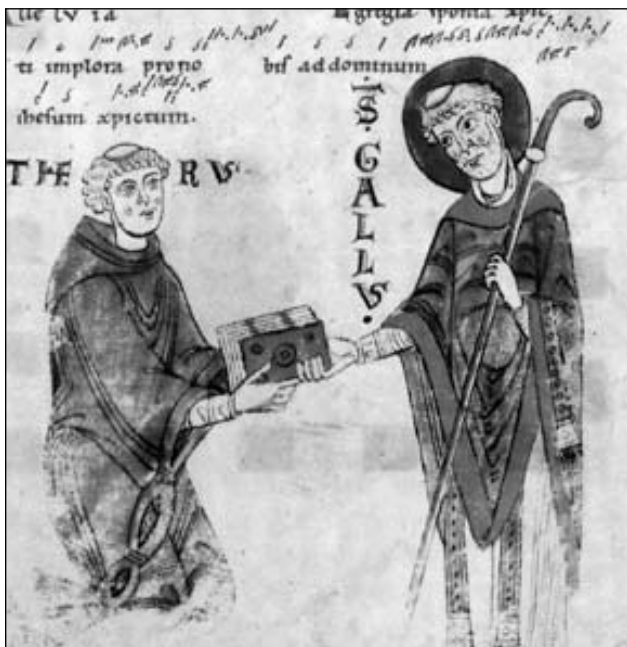 lle lv ia egregia sponsa xpi
ti implora pro no bis ad dominum
ihesum xpictum.
THE RVS
.S. GALLVS.